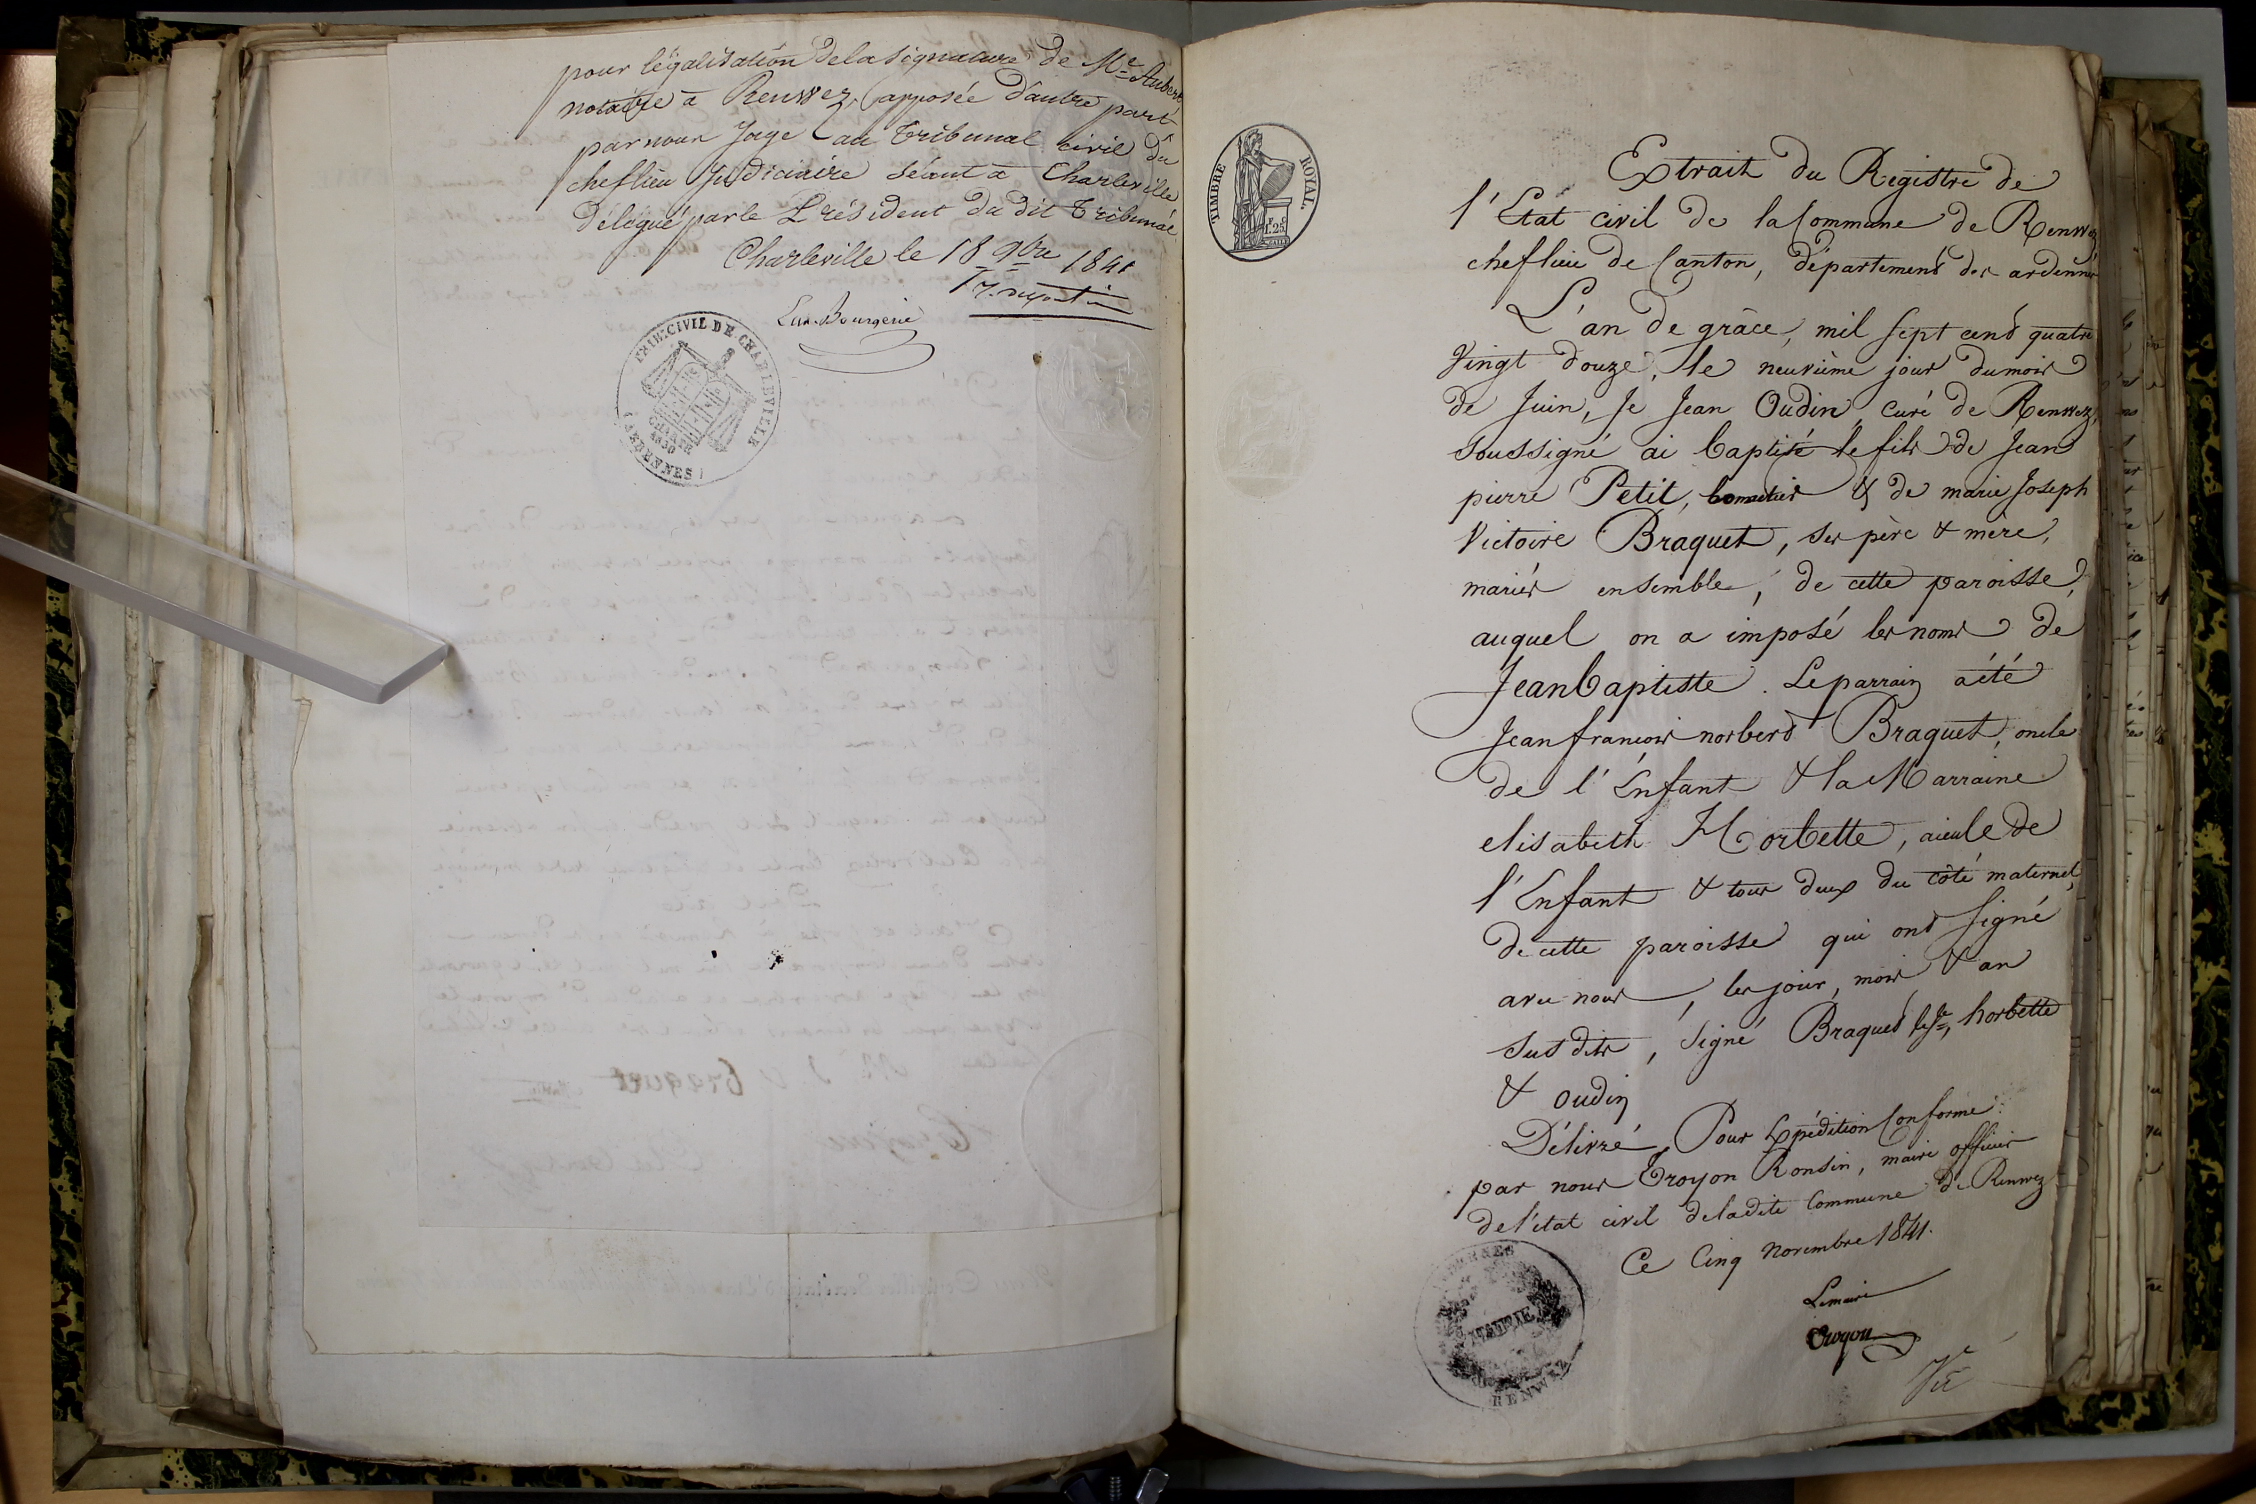 pour légalisation de la signature de Me Aubert
notaire à Renwez, apposée d'autre part
par nous Juge au Tribunal civil du
cheflieu Judiciaire séant à Charleville
délégué par le Président du dit Tribunal
Charleville le 18 9bre 1841
TRIB. CIVIL DE CHARLEVILLE
(ARDENNES)
CHARTE
1830
Braquet
TIMBRE ROYAL.
1f. 25c
Extrait du Registre de
l'Etat civil de la Commune de Renwez
cheflieu de Canton, département des ardennes
L'an de grâce, mil sept cent quatre
Vingt douze, le neuvième jour du mois
de Juin, Je Jean Oudin, curé de Renwez,
soussigné ai baptisé le fils de Jean
pierre Petit, & de marie Joseph
Victoire Braquet, ses père & mère,
mariés ensemble, de cette paroisse,
auquel on a imposé les noms de
Jean baptiste. Le parrain a été
Jean francois norbert Braquet, oncle
de l'Enfant & la Marraine
elisabeth Horbette, aieule de
l'Enfant & tous deux du côté maternel,
de cette paroisse qui ont signé
avec nous, les jour, mois & an
sus dits, signé Braquet, horbette
& oudin
Délivré Pour Expédition Conforme
par nous Troyon Ronsin, maire officier
de l'état civil de ladite Commune de Renwez
Ce Cinq Novembre 1841.
Lemaire
Troyon
ARDENNES
MAIRIE
RENWEZ